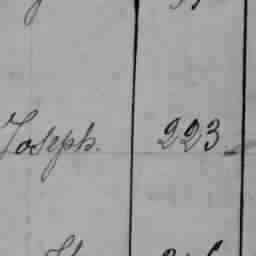 Joseph. 223